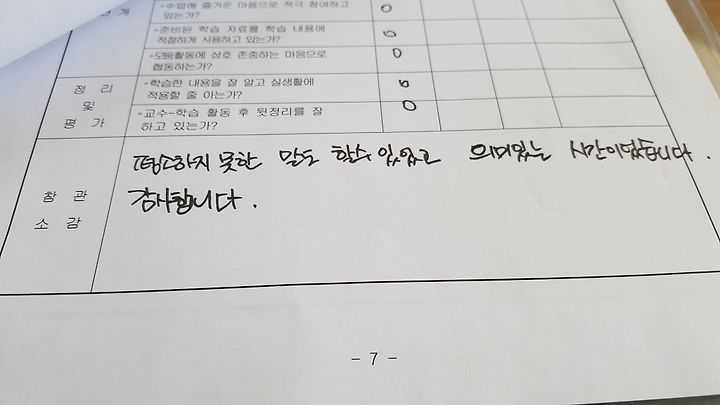 개
◦수업에 즐거운 마음으로 적극 참여하고
있는가?
◦준비된 학습 자료를 학습 내용에
적절하게 사용하고 있는가?
◦모둠활동에 상호 존중하는 마음으로
협동하는가?
정 리
및
평 가
◦학습한 내용을 잘 알고 실생활에
적용할 줄 아는가?
◦교수-학습 활동 후 뒷정리를 잘
하고 있는가?
참 관
소 감
평소하지 못한 말도 할수 있었고 의미있는 시간이었습니다.
감사합니다.
- 7 -